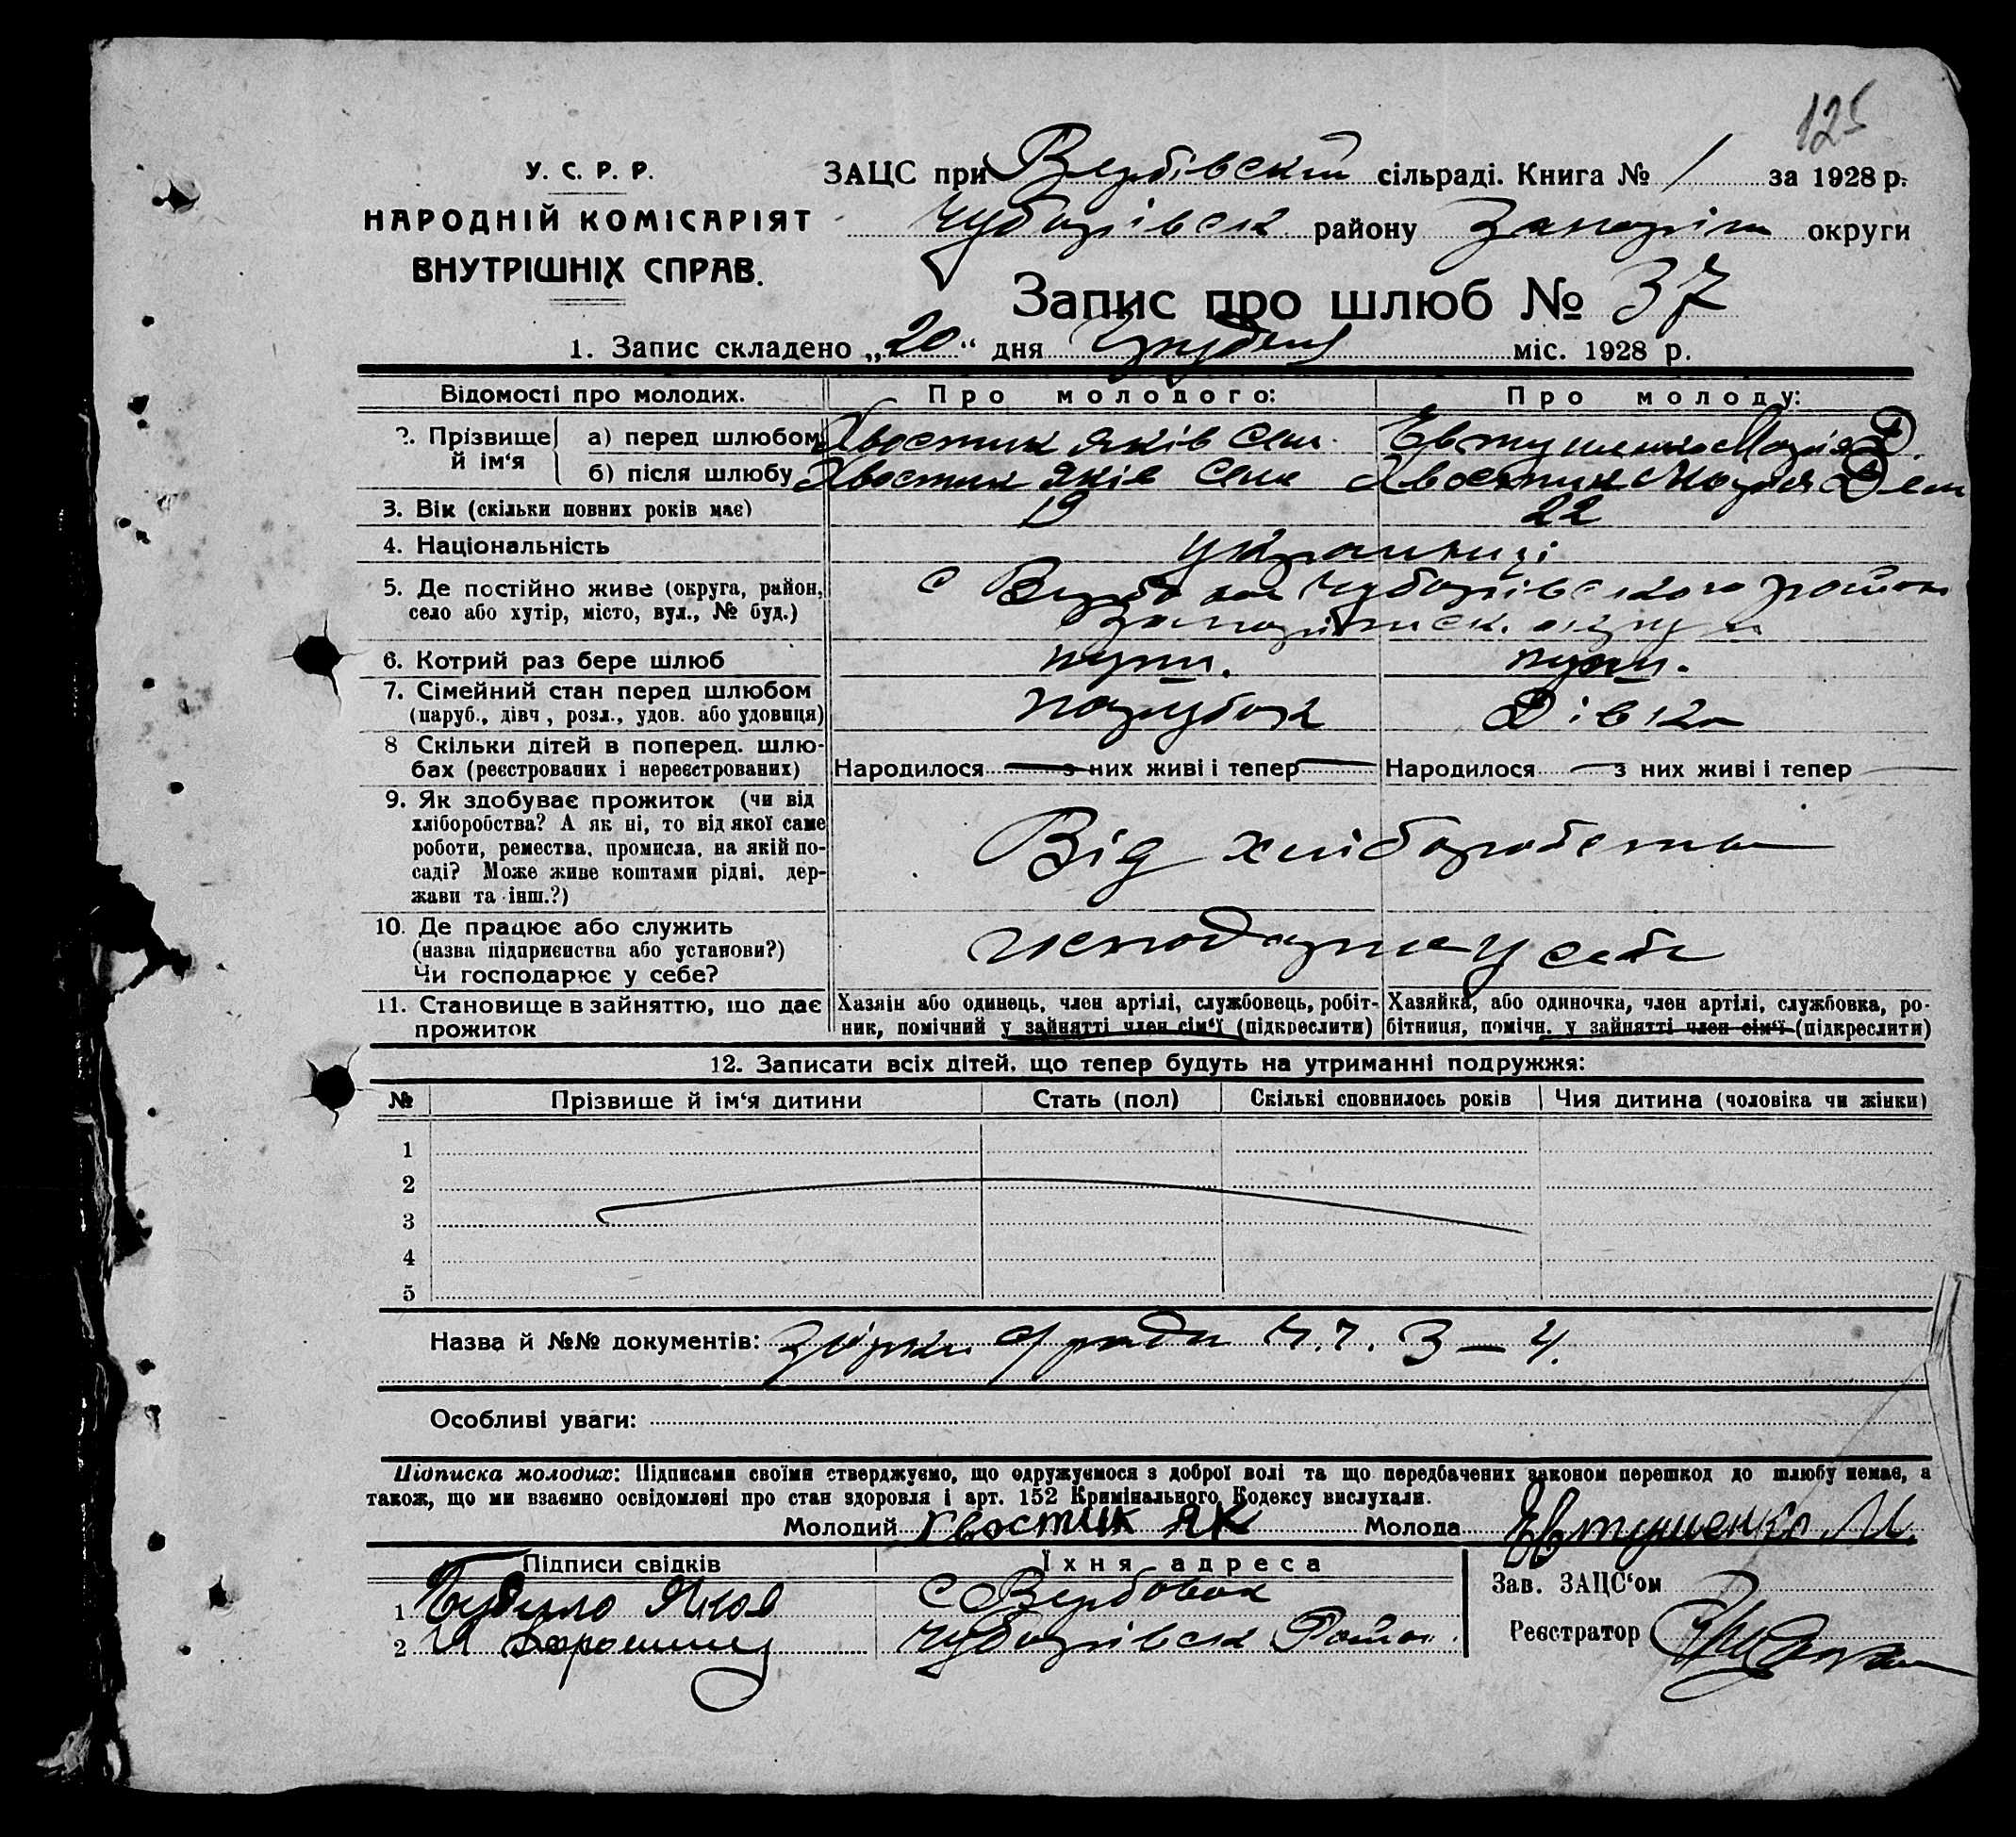 125
У. С. Р. Р.
НАРОДНІЙ КОМІСАРІЯТ
ВНУТРІШНІХ СПРАВ.
ЗАЦС при Вербівскій сільраді. Книга № 1 за 1928 р.
Чубарівськ району Запоріж округи
Запис про шлюб № 37
1. Запис складено „20“ дня Грудня міс. 1928 р.
Відомості про молодих. Про молодого: Про молоду:
2. Прізвище й ім‘я а) перед шлюбом Хвостик Яків Сем. Евтушенко Марія Д.
б) після шлюбу Хвостик Яків Сем Хвостик Марія Дем
3. Вік (скільки повних років має) 19 22
4. Національність українці
5. Де постійно живе (округа, район, село або хутір, місто, вул., № буд.) с Вербова Чубарівського району
Запоріжск. округи
6. Котрий раз бере шлюб перш. перш.
7. Сімейний стан перед шлюбом (паруб., дівч, розл., удов. або удовиця) парубок Дівка
8 Скільки дітей в поперед. шлюбах (реєстрованих і нереєстрованих) Народилося з них живі і тепер Народилося з них живі і тепер
9. Як здобуває прожиток (чи від хліборобства? А як ні, то від якої саме роботи, ремества, промисла, на якій посаді? Може живе коштами рідні, держави та інш.?) Від хліборобства
10. Де працює або служить (назва підприємства або установи?) Чи господарює у себе? господарює у себе
11. Становище в зайняттю, що дає прожиток
Хазяін або одинець, член артілі, службовець, робітник, помічний у зайнятті член сім‘ї (підкреслити)
Хазяйка, або одиночка, член артілі, службовка, робітниця, помічн. у зайнятті член сім‘ї (підкреслити)
12. Записати всіх дітей, що тепер будуть на утриманні подружжя:
№ Прізвище й ім‘я дитини Стать (пол) Скількі сповнилось років Чия дитина (чоловіка чи жінки)
1
2
3
4
5
Назва й №№ документів: 3 – 4.
Особливі уваги:
Підписка молодих: Підписами своїми стверджуємо, що одружуємося з доброї волі та що передбачених законом перешкод до шлюбу немає, а
також, що ми взаємно освідомлені про стан здоровля і арт. 152 Кримінального Кодексу вислухали.
Молодий Хвостик Як Молода Евтушенко М.
Підписи свідків Їхня адреса
Зав. ЗАЦС‘ом
1 Яков с Вербова
2 Чубарівськ Район.
Реєстратор